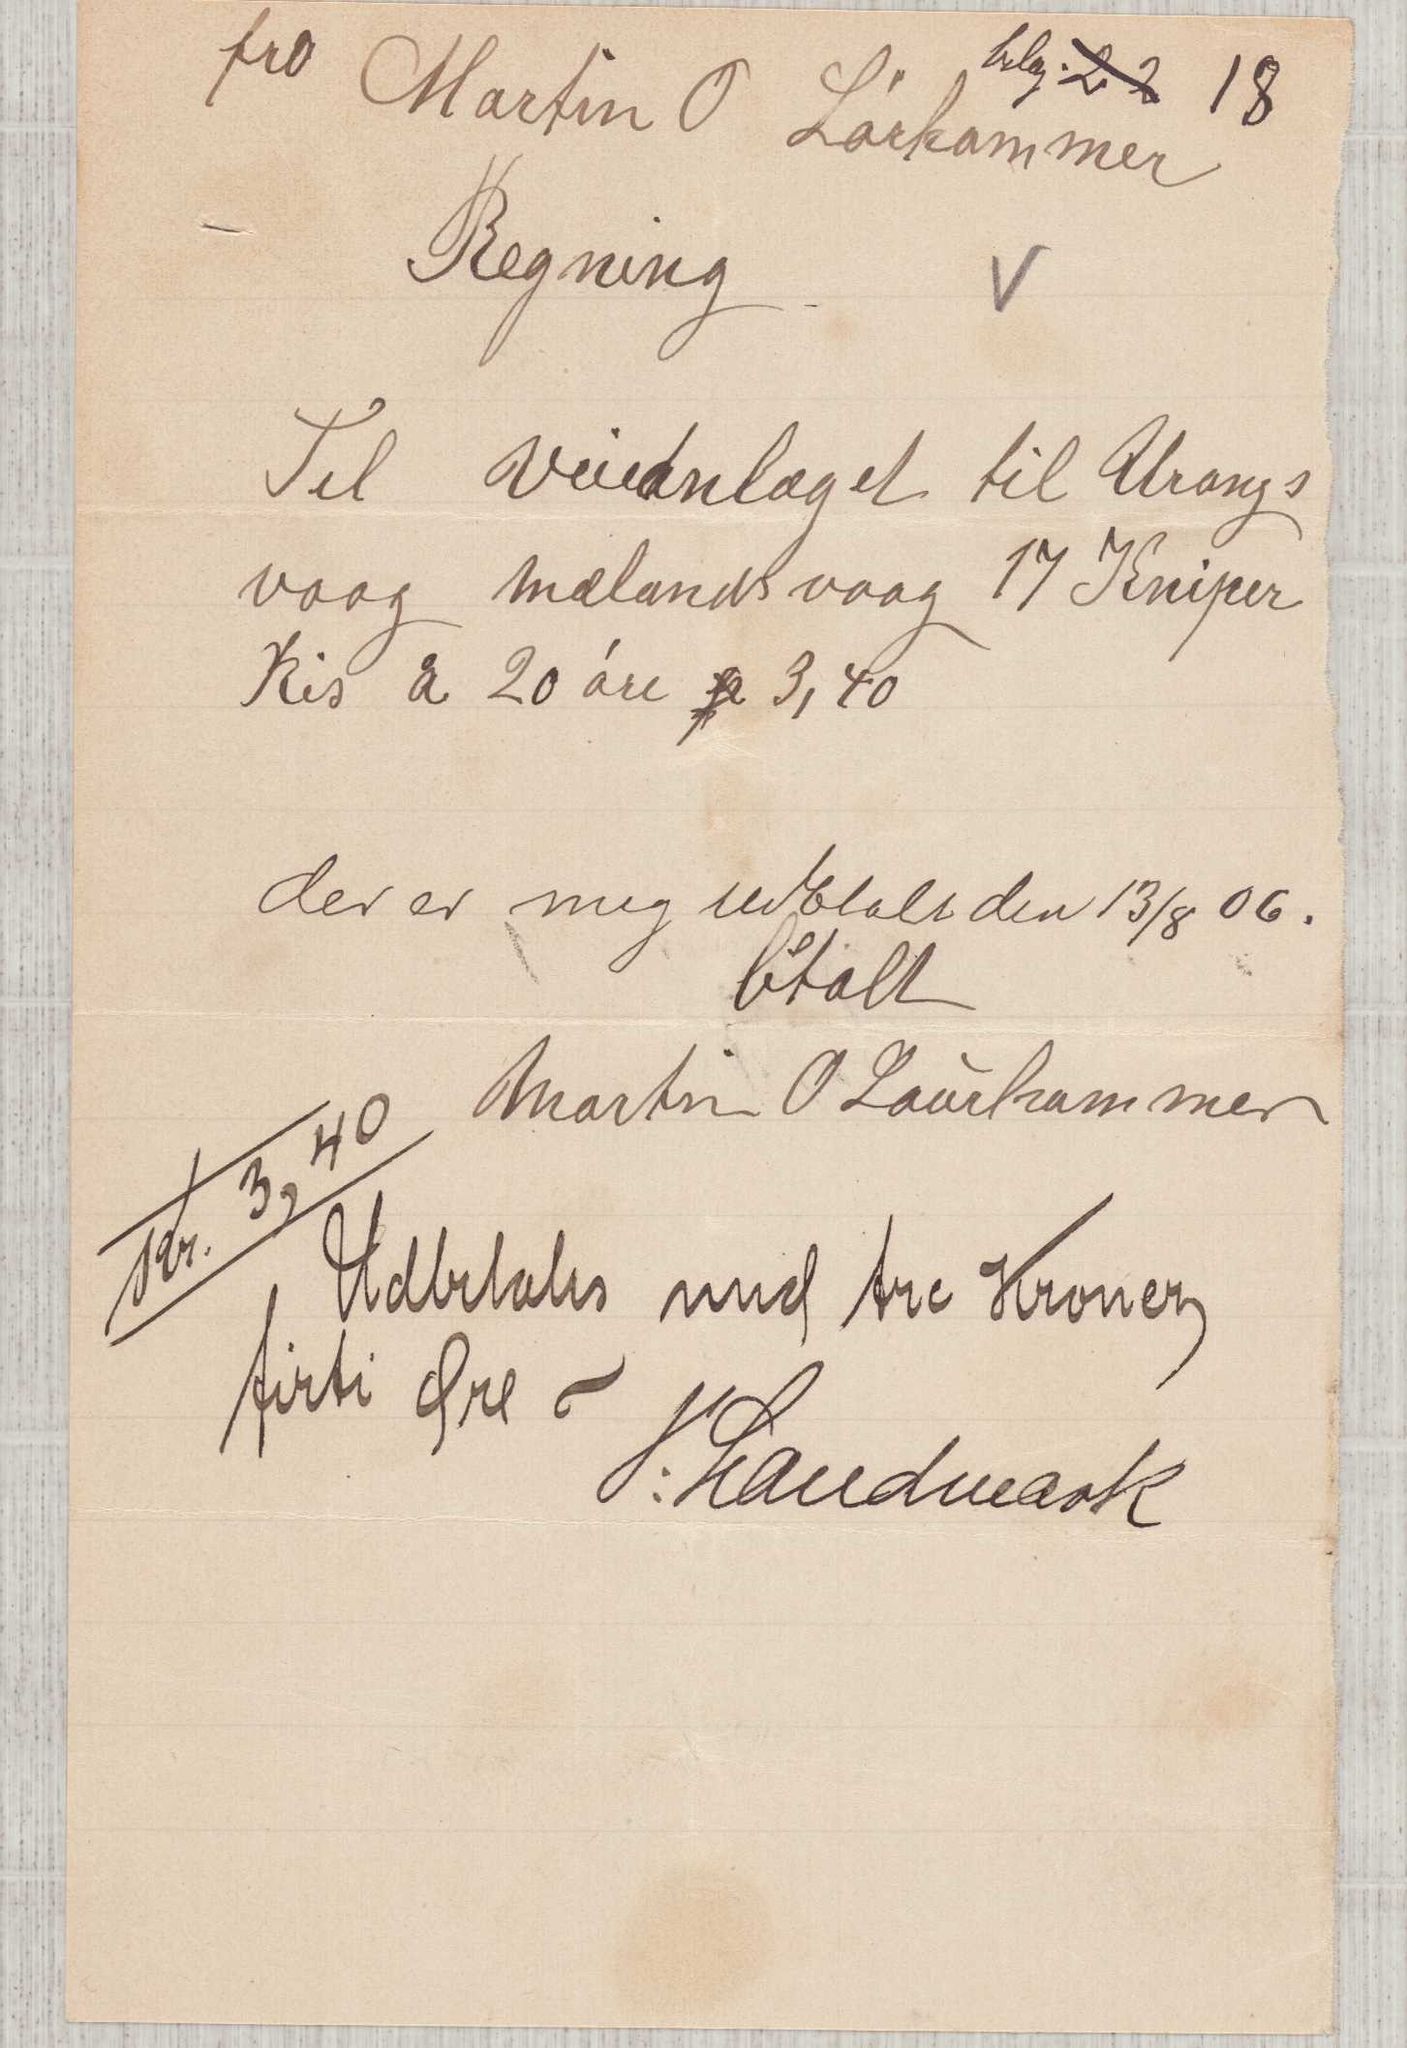 fra Martin O Lörkammer
bilag. 22 18
Regning
Til veieanlæget til Urangs
vaag mælandsvaag 17 Kniper
Ris a 20 öre 3,40
der er mig udbetalt den 13/8 06.
betalt
Martin O Laürkammer
Kr. 3,40
Udbetales med tre Kroner,
firti Øre
Landmark